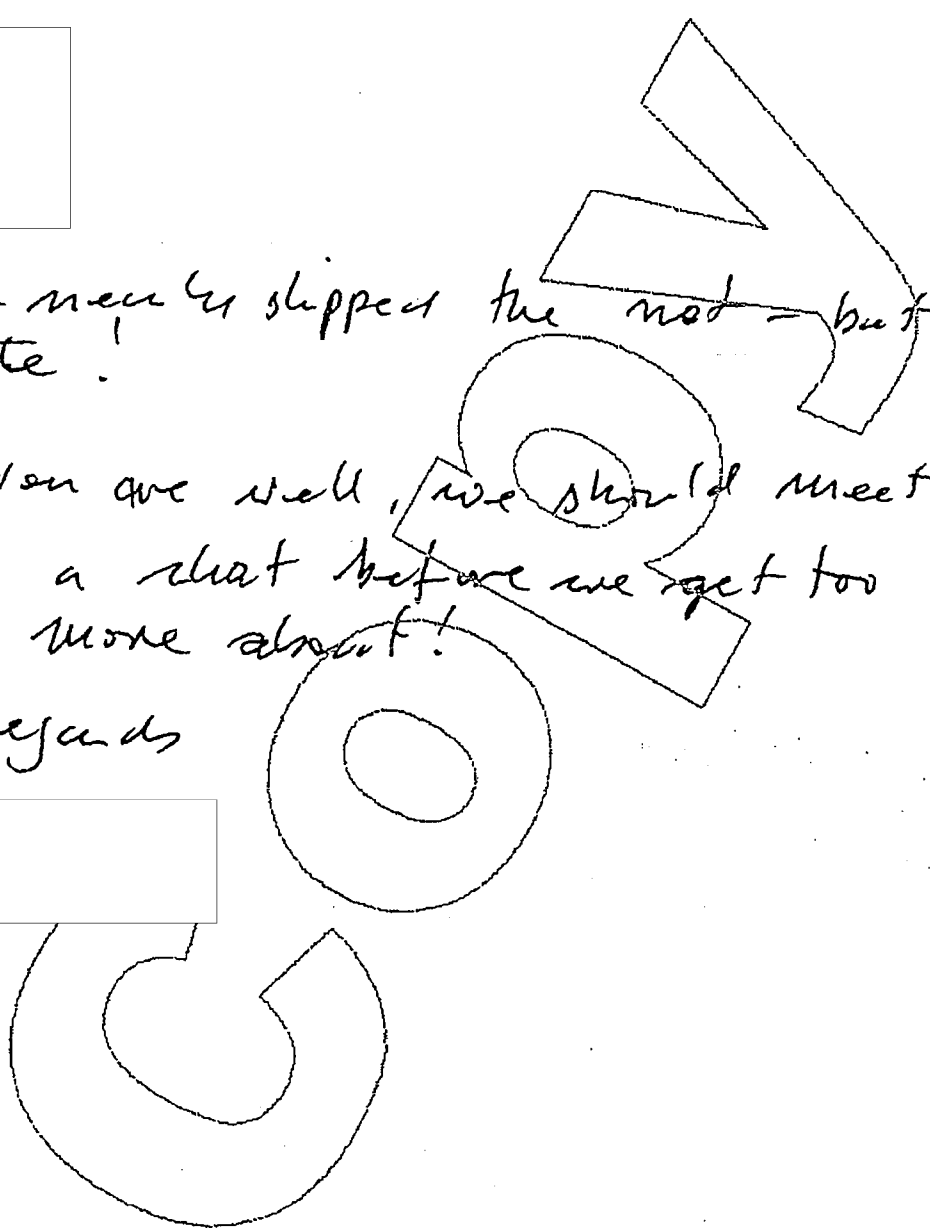 nearly slipped the net - but
te!
you are well, we should meet
a chat before we get too
more about!
egards
Copy